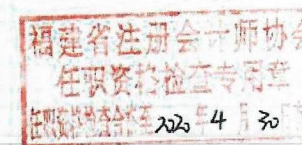 福建省注册会计师协会
任职资格检查专用章
任职资格检查合格至2020年4月30日